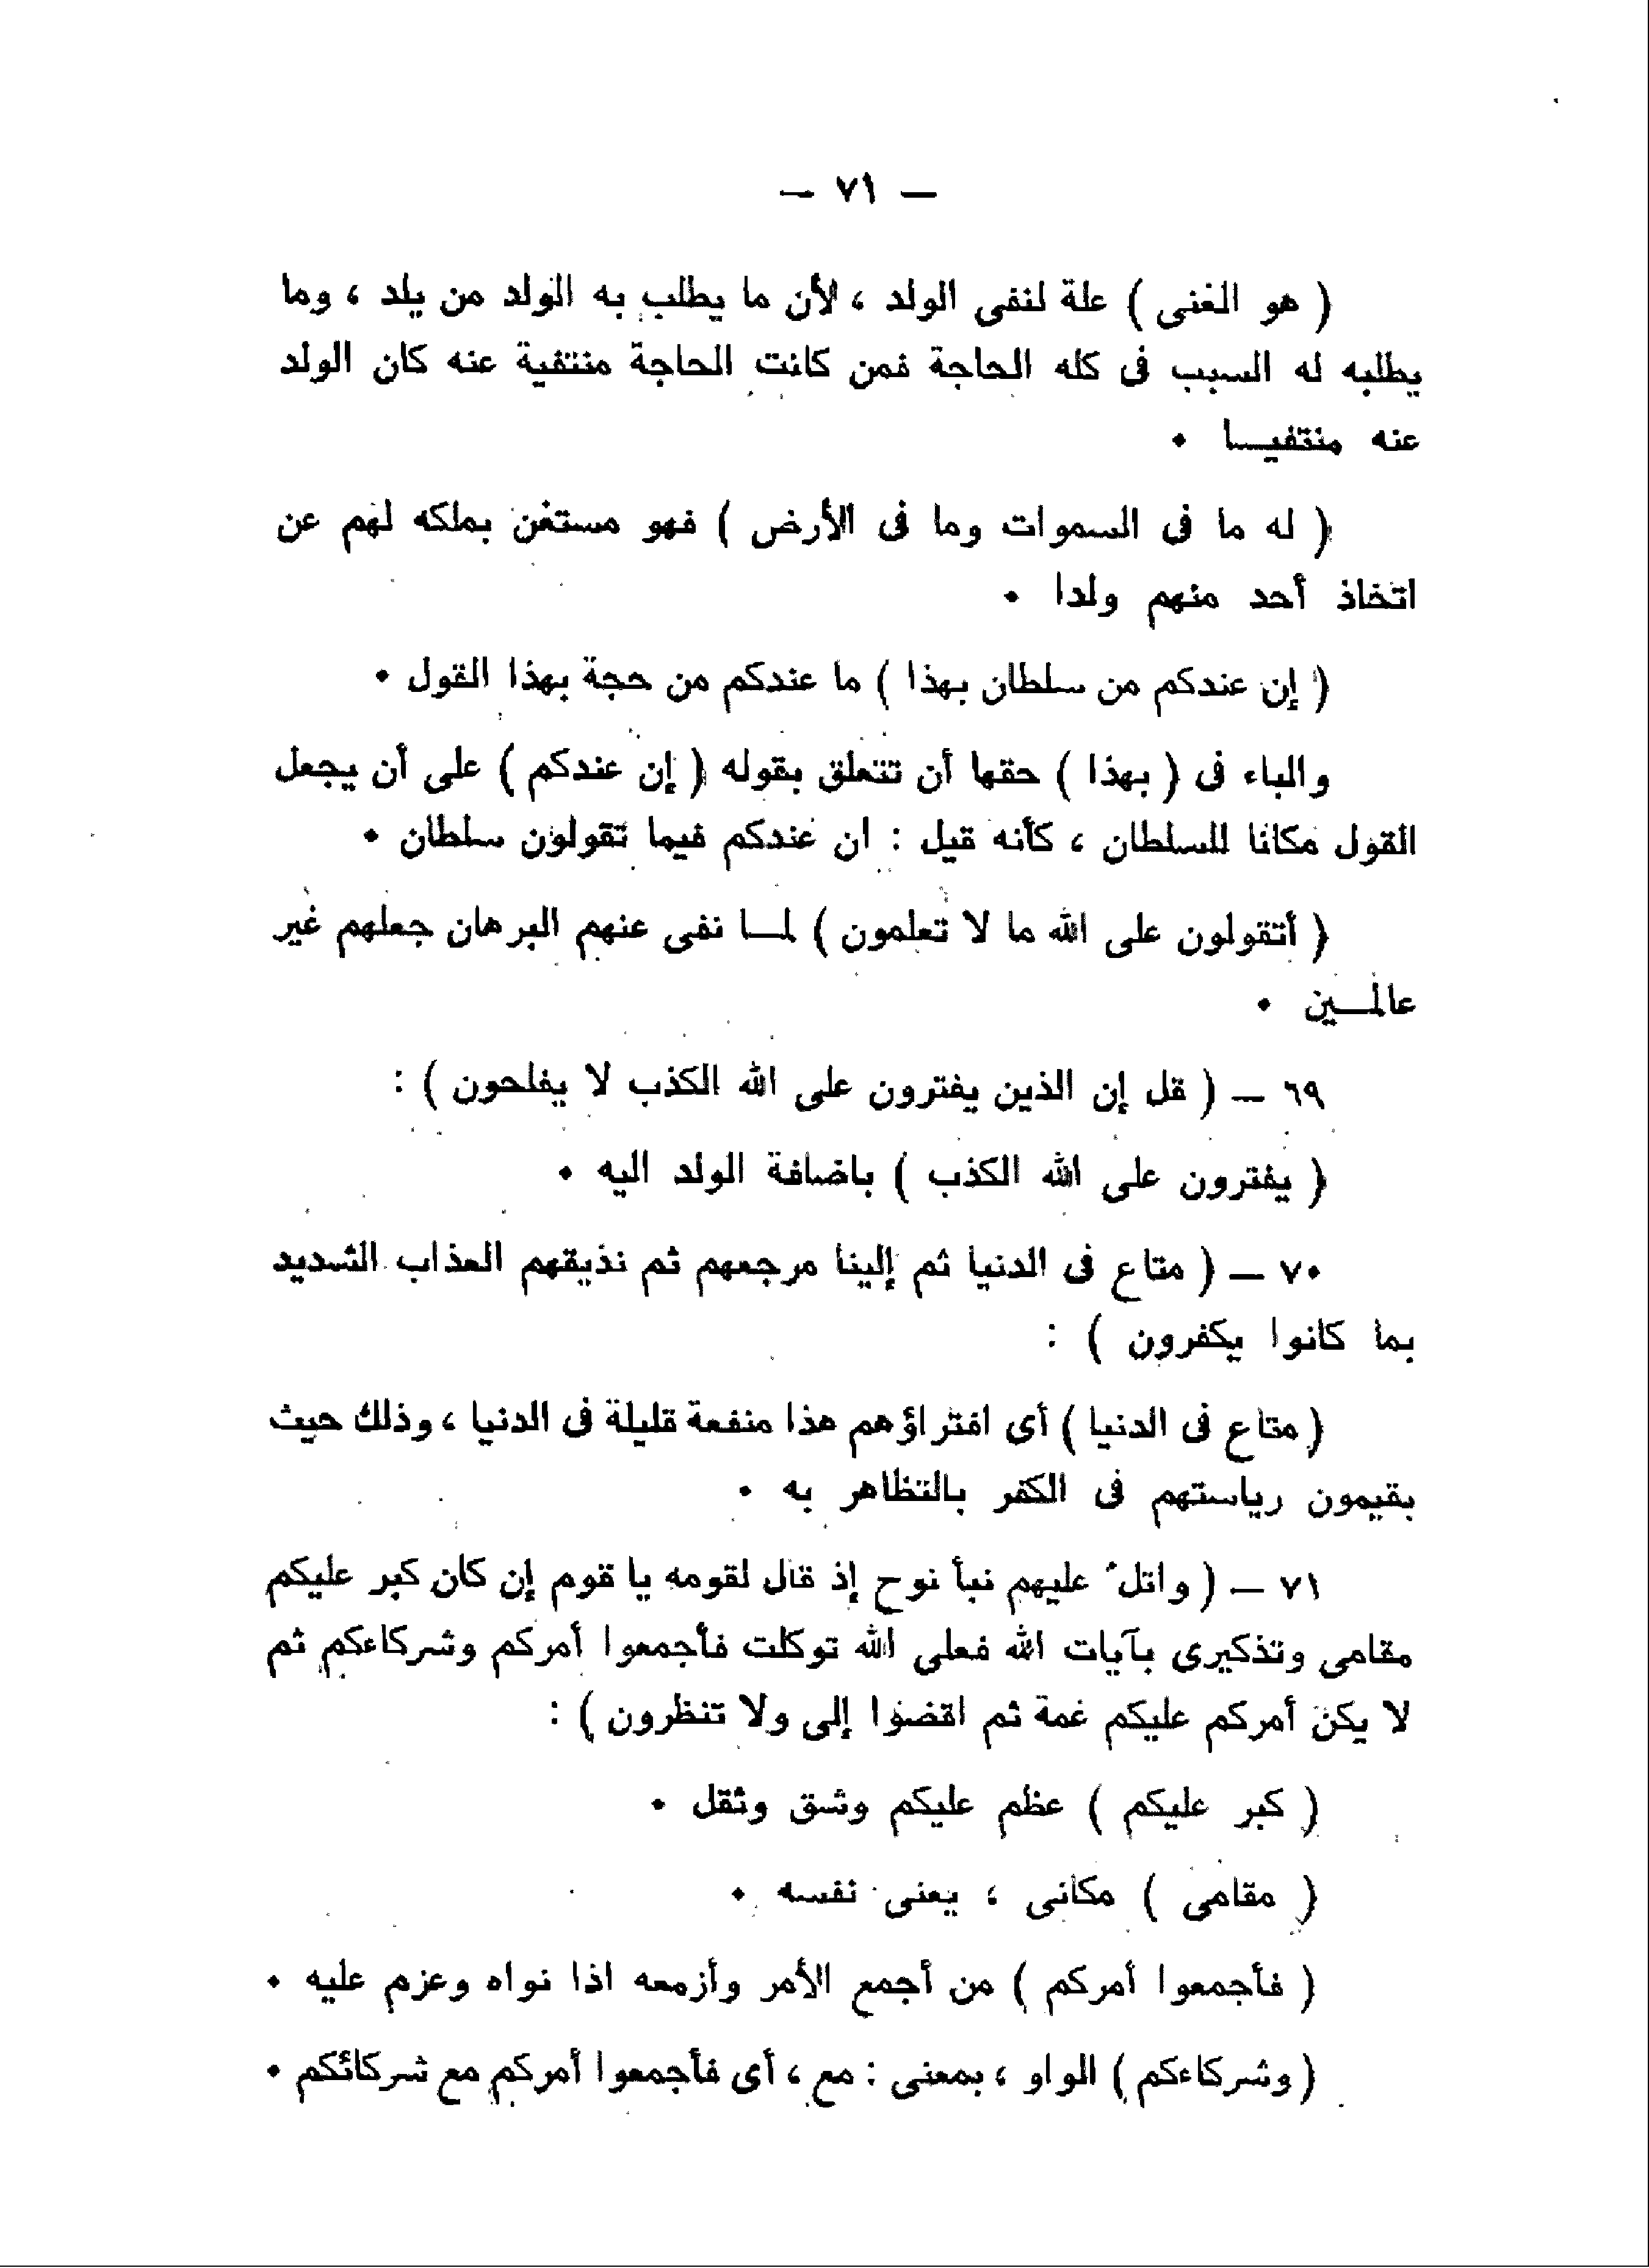 — ٧١ —
( هو الغنى ) علة لنفى الولد ، لأن ما يطلب به الولد من يلد ، وما
يطلبه له السبب فى كله الحاجة فمن كانت الحاجة منتفية عنه كان الولد
عنه منتفيـــا •
( له ما فى السموات وما فى الأرض ) فهو مستغن بملكه لهم عن
اتخاذ أحد منهم ولدا •
( إن عندكم من سلطان بهذا ) ما عندكم من حجة بهذا القول •
والباء فى ( بهذا ) حقها أن تتعلق بقوله ( إن عندكم ) على أن يجعل
القول مكانا للسلطان ، كأنه قيل : ان عندكم فيما تقولون سلطان •
( أتقولون على الله ما لا تعلمون ) لمــا نفى عنهم البرهان جعلهم غير
عالمــين •
٦٩ — ( قل إن الذين يفترون على الله الكذب لا يفلحون ) :
( يفترون على الله الكذب ) باضافة الولد اليه •
٧٠ — ( متاع فى الدنيا ثم إلينا مرجعهم ثم نذيقهم العذاب الشديد
بما كانوا يكفرون ) :
( متاع فى الدنيا ) أى افتراؤهم هذا منفعة قليلة فى الدنيا ، وذلك حيث
بقيمون رياستهم فى الكفر بالتظاهر به •
٧١ — ( واتلُ عليهم نبأ نوح إذ قال لقومه يا قوم إن كان كبر عليكم
مقامى وتذكيرى بآيات الله فعلى الله توكلت فأجمعوا أمركم وشركاءكم ثم
لا يكن أمركم عليكم غمة ثم اقضوا إلى ولا تنظرون ) :
( كبر عليكم ) عظم عليكم وشق وثقل •
( مقامى ) مكانى ، يعنى نفسه •
( فأجمعوا أمركم ) من أجمع الأمر وأزمعه اذا نواه وعزم عليه •
( وشركاءكم ) الواو ، بمعنى : مع ، أى فأجمعوا أمركم مع شركائكم •